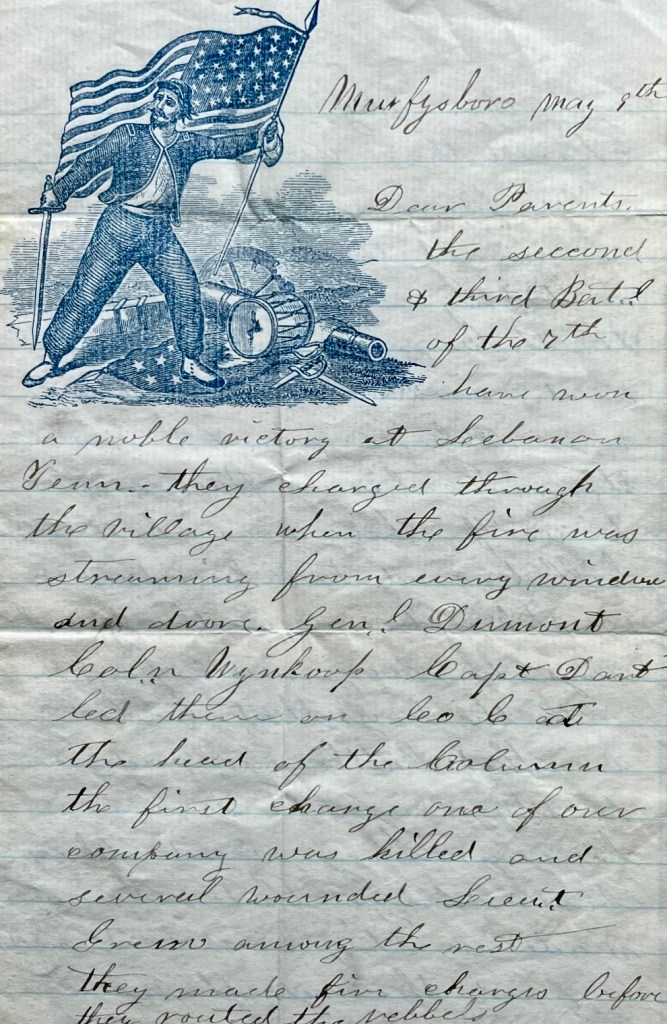 Murfysboro may 9th
Dear Parents.
the seccond
& third Batl
of the 7th
have won
a noble victory at Lebanon
Tenn - they charged through
the village when the fire was
streaming from every window
and doore. Genl Dumont
Coln Wynkoop Capt Dart
led them on Co C at
the head of the Column
the first charge one of our
company was killed and
several wounded Lieut
Green among the rest
they made five charges before
they routed the rebbels